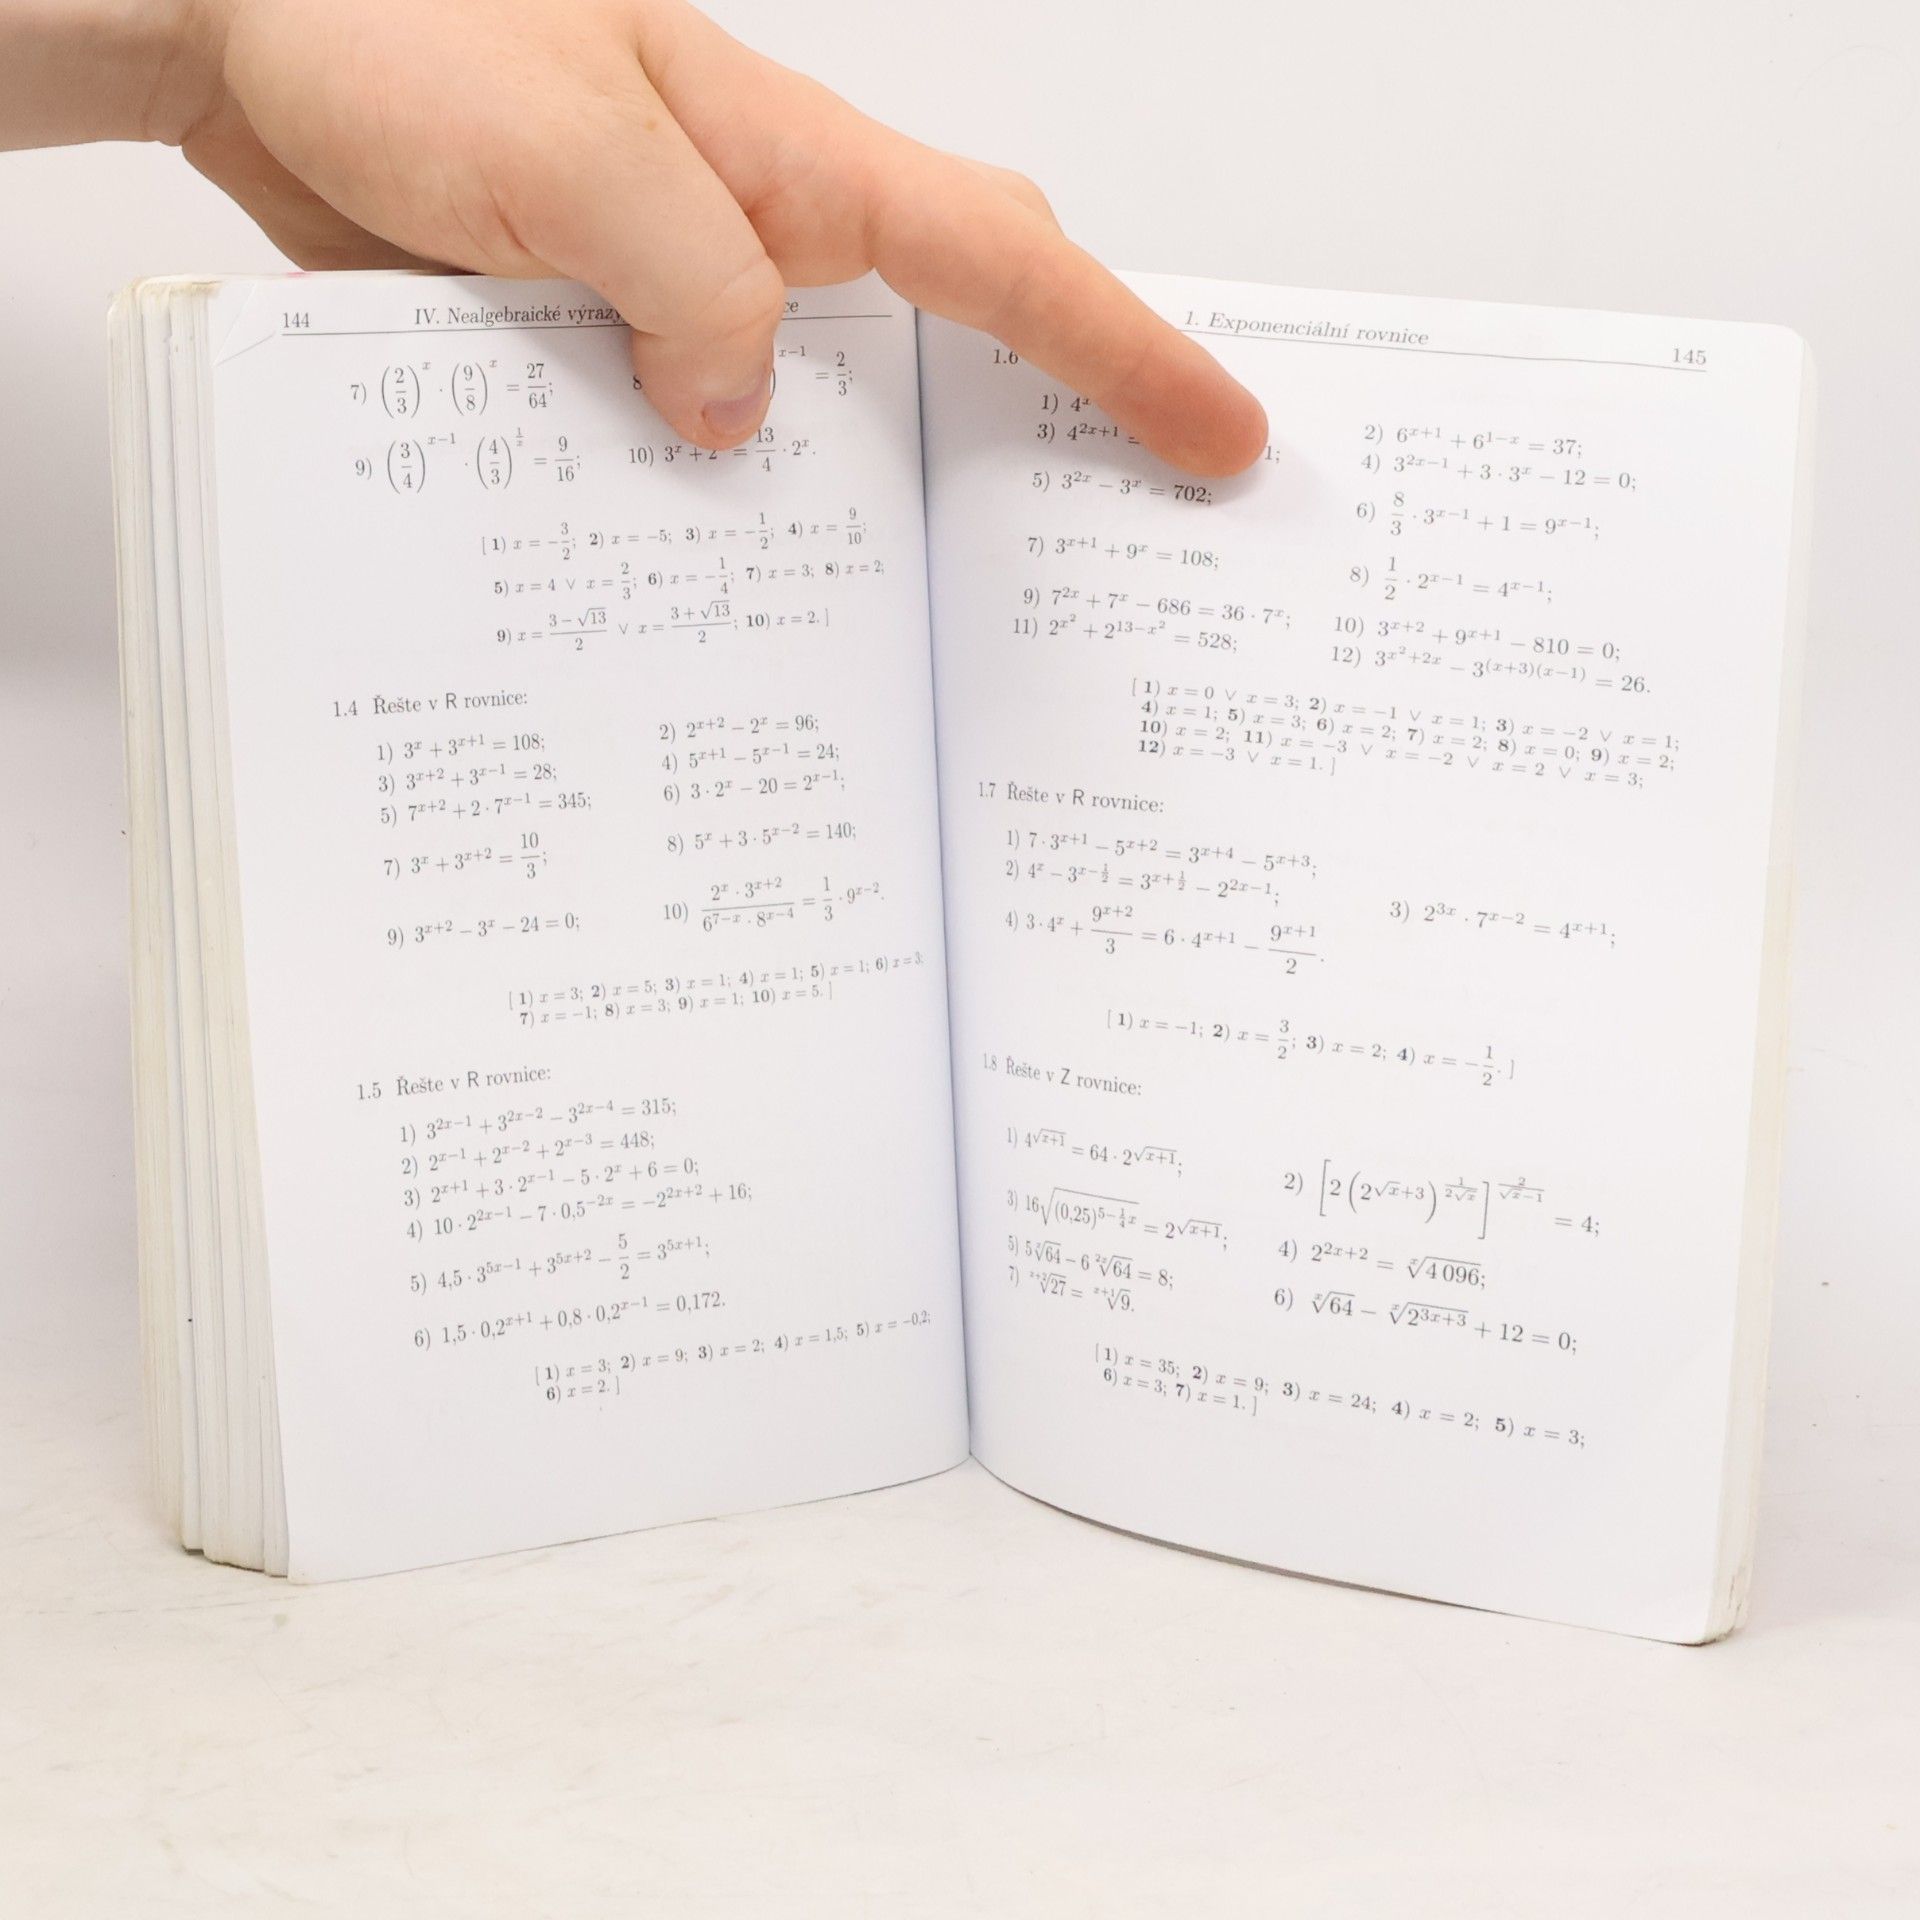 144 IV. Nealgebraické výrazy
7) (2/3)^x · (9/8)^x = 27/64; 8 )^{x−1} = 2/3;
9) (3/4)^{x−1} · (4/3)^{1/x} = 9/16; 10) 3^x + 2 = 13/4 · 2^x.
[ 1) x = −3/2; 2) x = −5; 3) x = −1/2; 4) x = 9/10;
5) x = 4 ∨ x = 2/3; 6) x = −1/4; 7) x = 3; 8) x = 2;
9) x = (3 − √13)/2 ∨ x = (3 + √13)/2; 10) x = 2. ]
1.4 Řešte v R rovnice:
1) 3^x + 3^{x+1} = 108; 2) 2^{x+2} − 2^x = 96;
3) 3^{x+2} + 3^{x−1} = 28; 4) 5^{x+1} − 5^{x−1} = 24;
5) 7^{x+2} + 2 · 7^{x−1} = 345; 6) 3 · 2^x − 20 = 2^{x−1};
7) 3^x + 3^{x+2} = 10/3; 8) 5^x + 3 · 5^{x−2} = 140;
9) 3^{x+2} − 3^x − 24 = 0; 10) (2^x · 3^{x+2})/(6^{7−x} · 8^{x−4}) = 1/3 · 9^{x−2}.
[ 1) x = 3; 2) x = 5; 3) x = 1; 4) x = 1; 5) x = 1; 6) x = 3;
7) x = −1; 8) x = 3; 9) x = 1; 10) x = 5. ]
1.5 Řešte v R rovnice:
1) 3^{2x−1} + 3^{2x−2} − 3^{2x−4} = 315;
2) 2^{x−1} + 2^{x−2} + 2^{x−3} = 448;
3) 2^{x+1} + 3 · 2^{x−1} − 5 · 2^x + 6 = 0;
4) 10 · 2^{2x−1} − 7 · 0,5^{−2x} = −2^{2x+2} + 16;
5) 4,5 · 3^{5x−1} + 3^{5x+2} − 5/2 = 3^{5x+1};
6) 1,5 · 0,2^{x+1} + 0,8 · 0,2^{x−1} = 0,172.
[ 1) x = 3; 2) x = 9; 3) x = 2; 4) x = 1,5; 5) x = −0,2;
6) x = 2. ]
1. Exponenciální rovnice 145
1.6
1) 4^x 2) 6^{x+1} + 6^{1−x} = 37;
3) 4^{2x+1} = 1; 4) 3^{2x−1} + 3 · 3^x − 12 = 0;
5) 3^{2x} − 3^x = 702; 6) 8/3 · 3^{x−1} + 1 = 9^{x−1};
7) 3^{x+1} + 9^x = 108; 8) 1/2 · 2^{x−1} = 4^{x−1};
9) 7^{2x} + 7^x − 686 = 36 · 7^x; 10) 3^{x+2} + 9^{x+1} − 810 = 0;
11) 2^{x²} + 2^{13−x²} = 528; 12) 3^{x²+2x} − 3^{(x+3)(x−1)} = 26.
[ 1) x = 0 ∨ x = 3; 2) x = −1 ∨ x = 1; 3) x = −2 ∨ x = 1;
4) x = 1; 5) x = 3; 6) x = 2; 7) x = 2; 8) x = 0; 9) x = 2;
10) x = 2; 11) x = −3 ∨ x = −2 ∨ x = 2 ∨ x = 3;
12) x = −3 ∨ x = 1. ]
1.7 Řešte v R rovnice:
1) 7 · 3^{x+1} − 5^{x+2} = 3^{x+4} − 5^{x+3};
2) 4^x − 3^{x−1/2} = 3^{x+1/2} − 2^{2x−1}; 3) 2^{3x} · 7^{x−2} = 4^{x+1};
4) 3 · 4^x + 9^{x+2}/3 = 6 · 4^{x+1} − 9^{x+1}/2.
[ 1) x = −1; 2) x = 3/2; 3) x = 2; 4) x = −1/2. ]
1.8 Řešte v Z rovnice:
1) 4^{√(x+1)} = 64 · 2^{√(x+1)}; 2) [2 (2^{√x+3})^{1/(2√x)}]^{2/(√x−1)} = 4;
3) 16√((0,25)^{5−¼x}) = 2^{√(x+1)}; 4) 2^{2x+2} = ˣ√4 096;
5) 5 ˣ√64 − 6 ²ˣ√64 = 8; 6) ˣ√64 − ˣ√(2^{3x+3}) + 12 = 0;
7) ˣ⁺²√27 = ˣ⁺¹√9.
[ 1) x = 35; 2) x = 9; 3) x = 24; 4) x = 2; 5) x = 3;
6) x = 3; 7) x = 1. ]